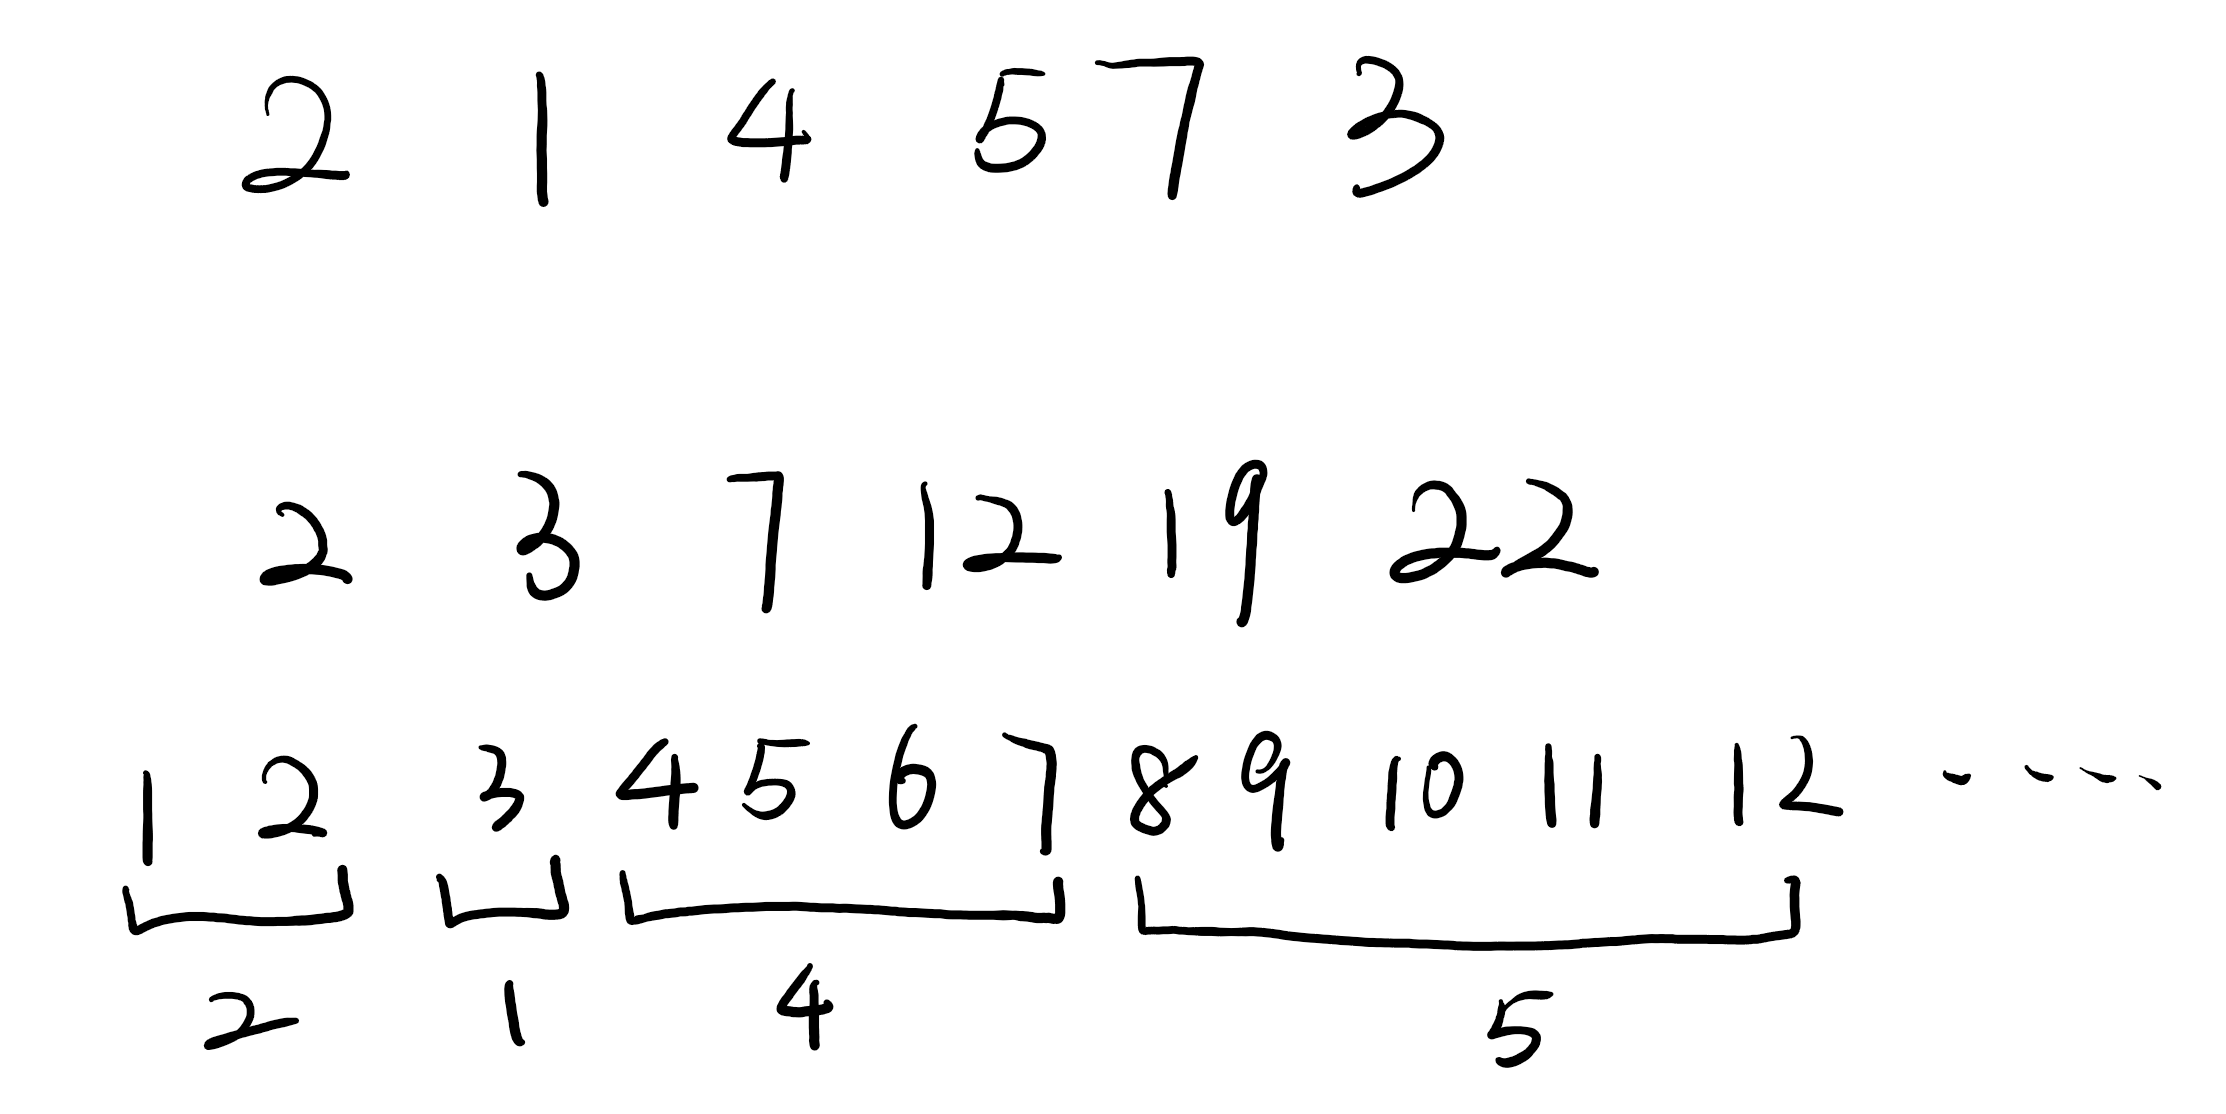 2 1 4 5 7 3
2 3 7 12 19 22
1 2 3 4 5 6 7 8 9 10 11 12 ....
2 1 4 5